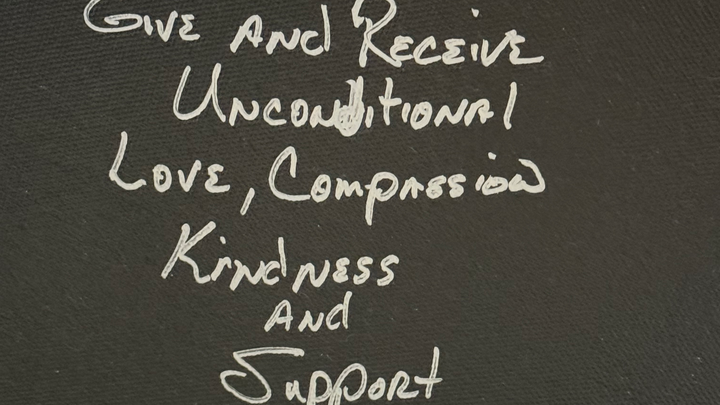 Give and Receive
Unconditional
Love, Compassion
Kindness
and
Support